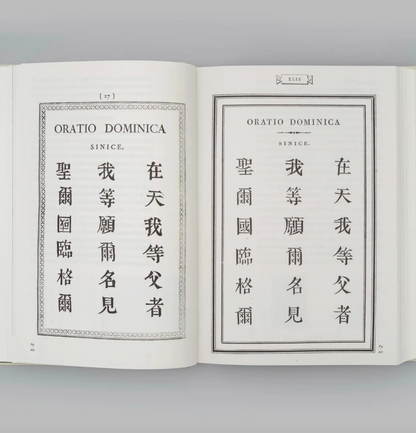 ( 27 )
ORATIO DOMINICA
SINICE.
在天我等父者
我等願爾名見
聖爾國臨格爾
XLIX
ORATIO DOMINICA
SINICE.
在天我等父者
我等願爾名見
聖爾國臨格爾